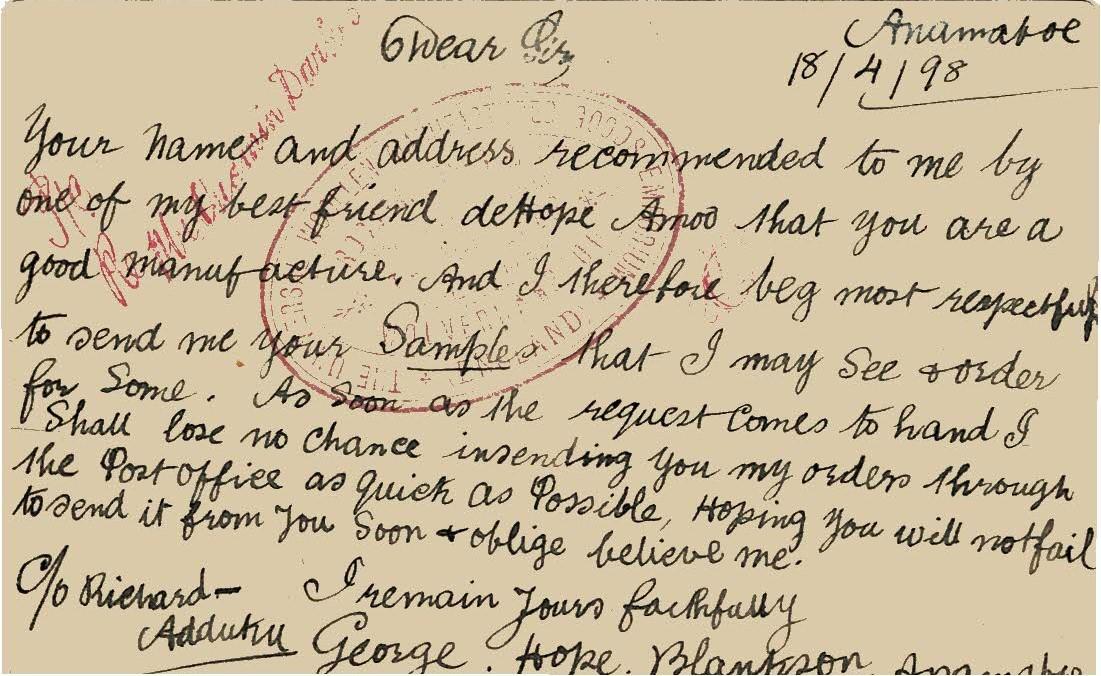 Dear Sir
Anamaboe
18/4/98
Your name and address recommended to me by
one of my best friend deHope Amoo that you are a
good manufacture. And I therefore beg most respectfully
to send me your Samples that I may See & order
for Some. As soon as the request comes to hand I
Shall lose no chance insending you my orders through
the Post office as quick as Possible, Hoping you will notfail
to send it from you Soon & oblige believe me.
I remain Yours faithfully
C/o Richard-
Adduku
George. Hope. Blankson, Anamaboe